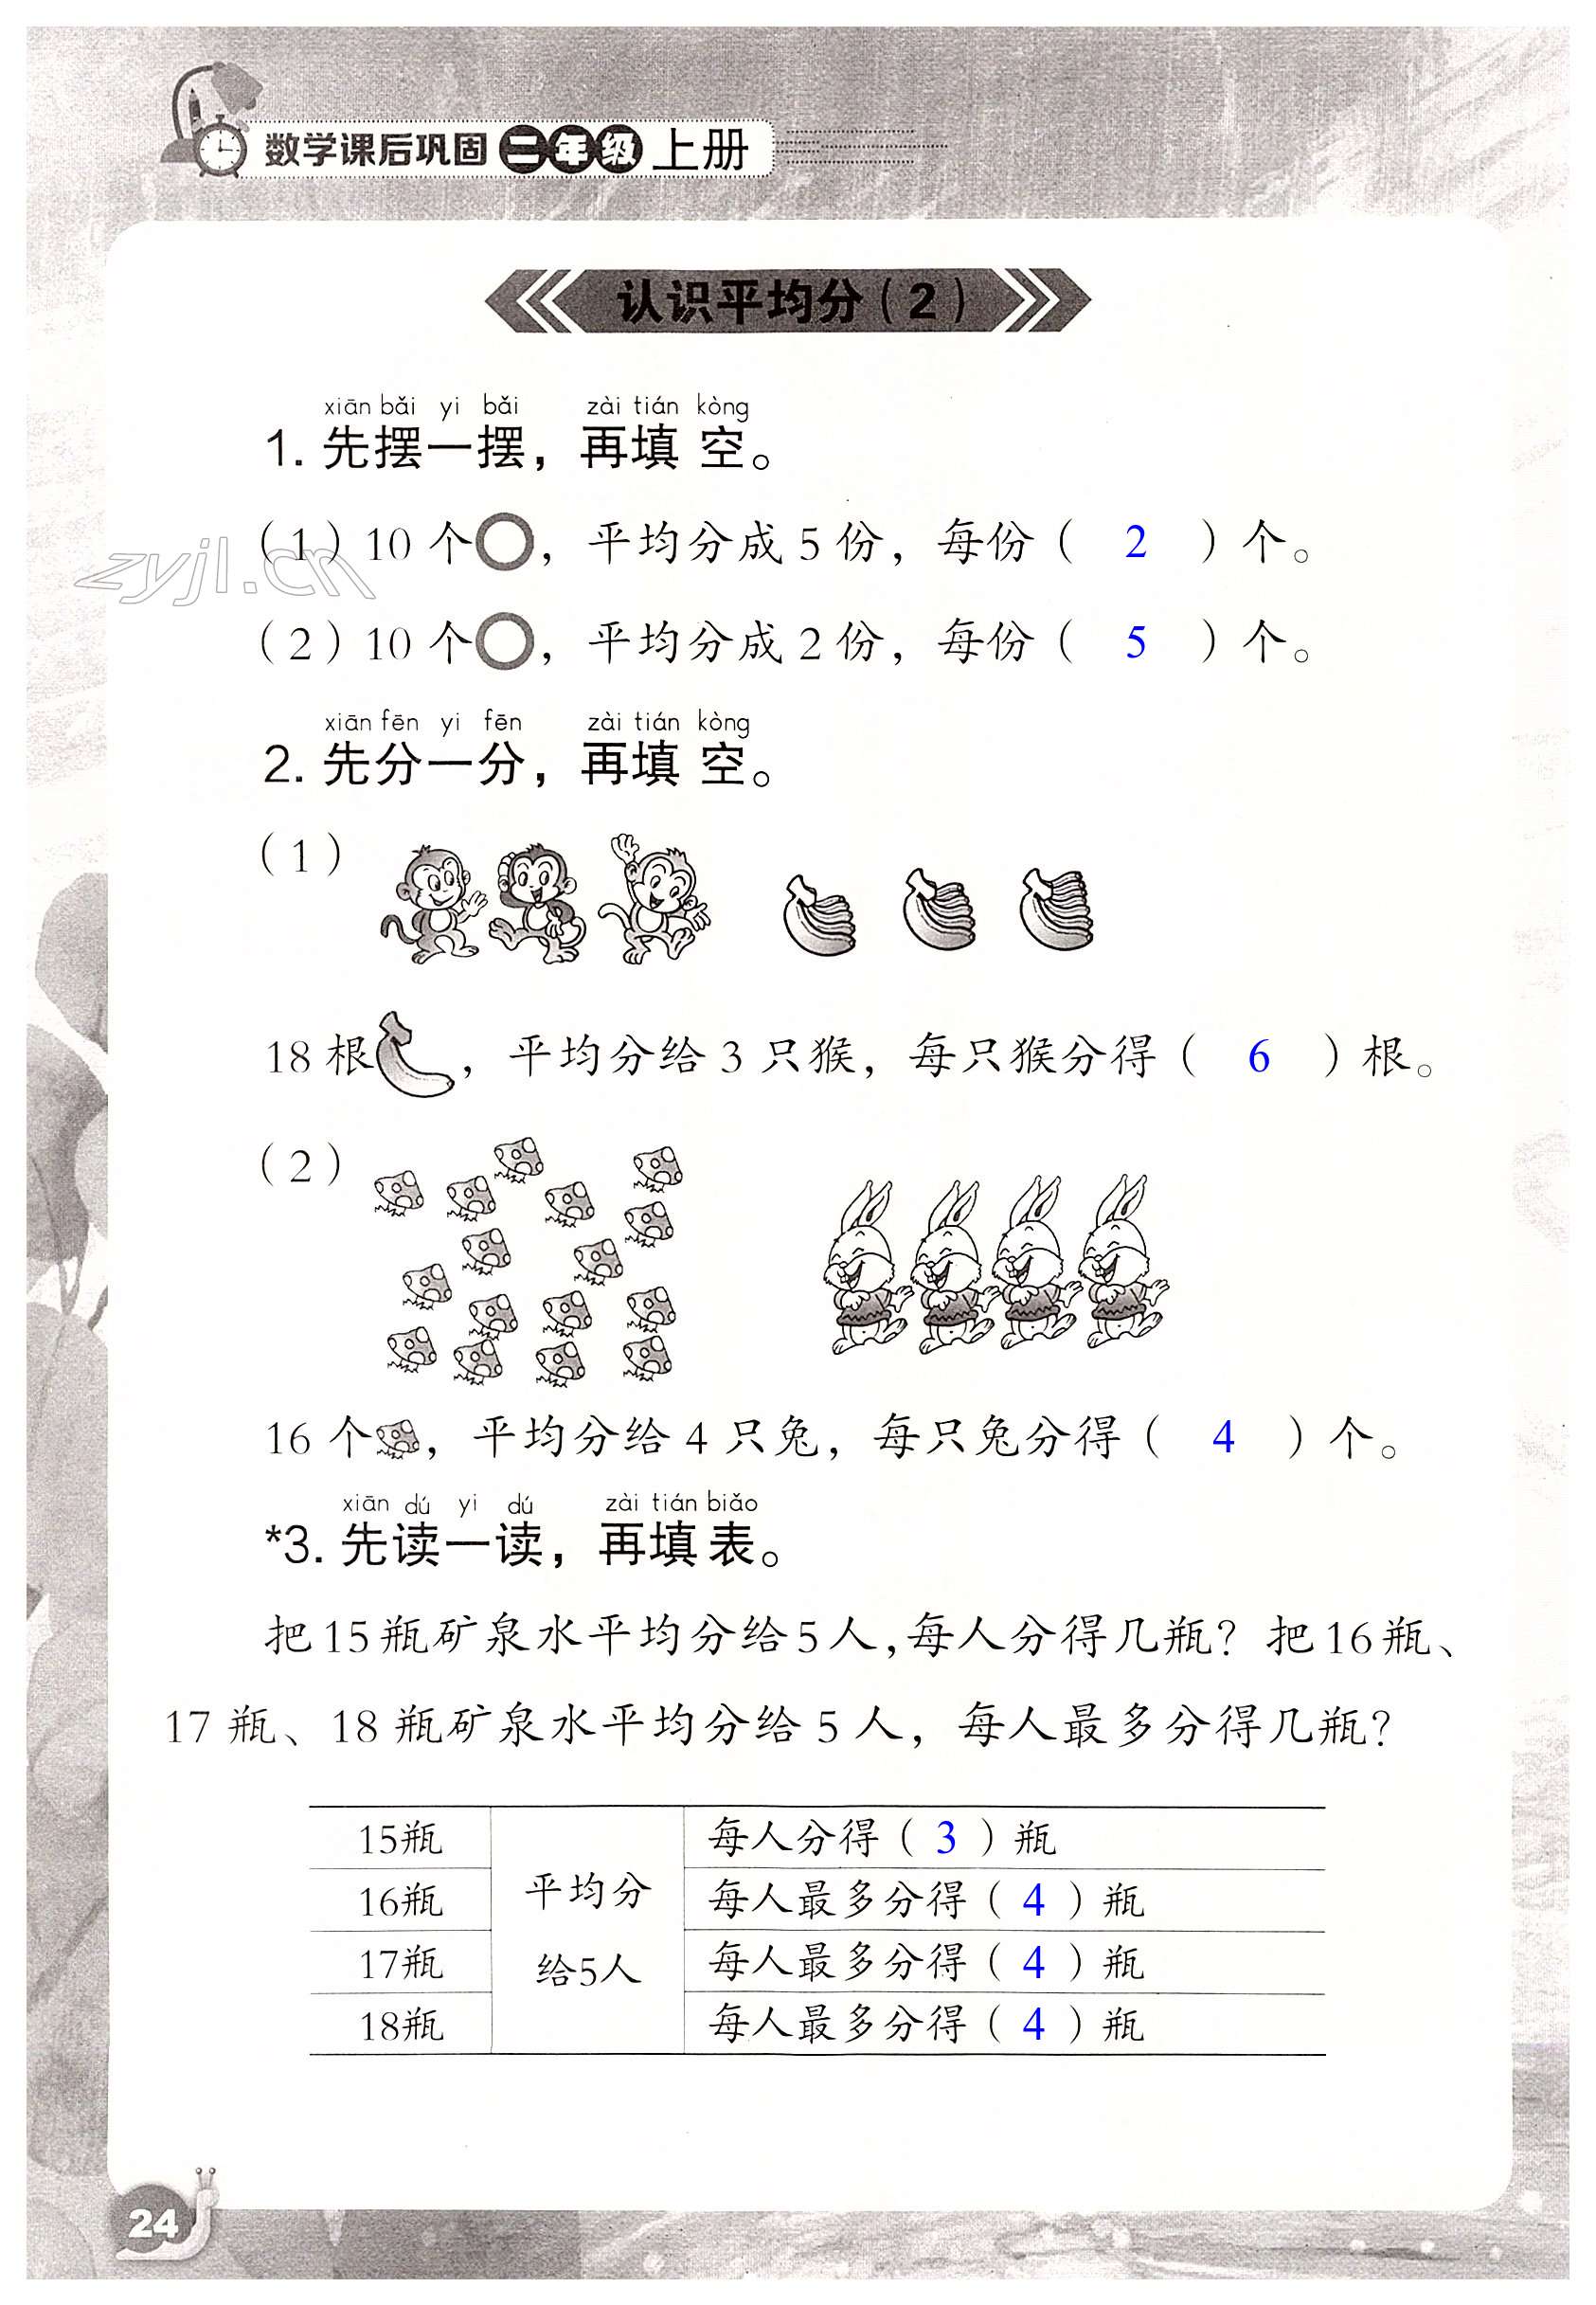 数学课后巩固 二年级 上册
认识平均分(2)
xiān bǎi yi bǎi zài tián kòng
1. 先摆一摆，再填空。
(1)10 个○，平均分成 5 份，每份( 2 )个。
zyjl.cn
(2)10 个○，平均分成 2 份，每份( 5 )个。
xiān fēn yi fēn zài tián kòng
2. 先分一分，再填空。
(1)
18 根，平均分给 3 只猴，每只猴分得( 6 )根。
(2)
16 个，平均分给 4 只兔，每只兔分得( 4 )个。
xiān dú yi dú zài tián biǎo
*3. 先读一读，再填表。
把15瓶矿泉水平均分给5人,每人分得几瓶？把16瓶、
17 瓶、18 瓶矿泉水平均分给 5 人，每人最多分得几瓶？
15瓶 每人分得( 3 )瓶
平均分
16瓶 每人最多分得( 4 )瓶
给5人
17瓶 每人最多分得( 4 )瓶
18瓶 每人最多分得( 4 )瓶
24